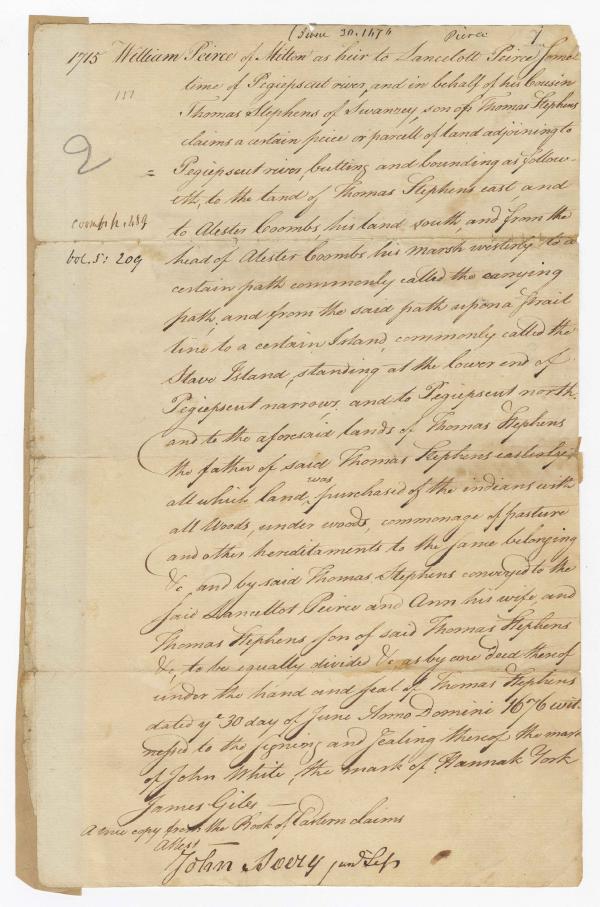 (June 30. 1676 Pierce 7
1715 William Peirce of Milton as heir to Lancelott Peirce some
time of Pegiepscut river, and in behalf of his Cousin
Thomas Stephens of Swanzey, son of Thomas Stephens
claims a certain peice or parcell of land adjoining to
Pegiepscut river, butting and bounding as follow-
eth, to the land of Thomas Stephens east, and
to Alester Coombs his land south, and from the
head of Alester Coombs his marsh westerly to a
certain path commonly called the carrying
path, and from the said path upon a strait
line to a certain Island, commonly called the
Stave Island, standing at the lower end of
Pegiepscut narrows and to Pegiepscut north-
and to the aforesaid lands of Thomas Stephens
the father of said Thomas Stephens easterly
all which land was purchased of the indians with
all Woods, under woods, commonage of pasture
and other hereditaments to the same belonging
&c, and by said Thomas Stephens conveyed to the
said Lancellot Peirce and Ann his wife, and
Thomas Stephens son of said Thomas Stephens
&c, to be equally divided &c as by one deed thereof
under the hand and seal of Thomas Stephens
dated ye 30 day of June Anno Domini 1676 wit-
nessed to the signing and sealing thereof the mark
of John White, the mark of Hannah York
James Giles —
A true copy from the Book of Eastern claims
Attest
John Avery junr
2
vol. 5: 209